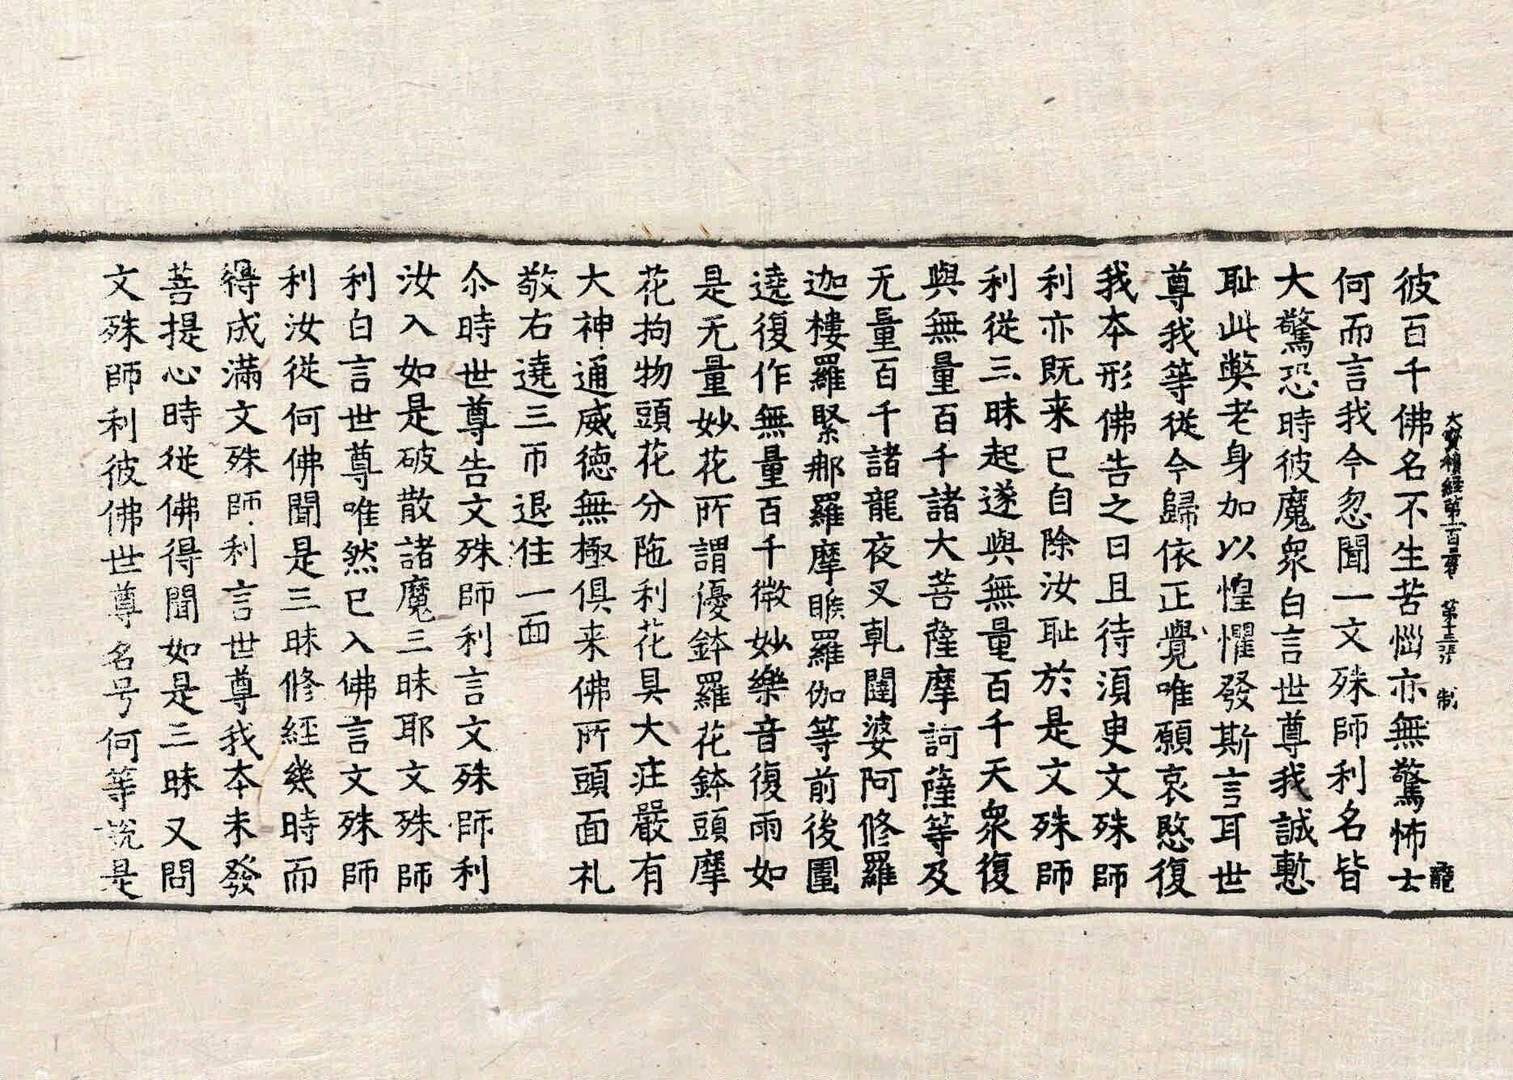 大寶積經第一百三卷 第十三張 制 龍
彼百千佛名不生苦惱亦無驚怖士
何而言我今忽聞一文殊師利名皆
大驚恐時彼魔衆白言世尊我誠慙
耻此弊老身加以惶懼發斯言耳世
尊我等從今歸依正覺唯願哀愍復
我本形佛告之曰且待須臾文殊師
利亦既来已自除汝耻於是文殊師
利從三昧起遂與無量百千天衆復
與無量百千諸大菩薩摩訶薩等及
无量百千諸龍夜叉乹闥婆阿修羅
迦樓羅緊那羅摩睺羅伽等前後圍
遶復作無量百千微妙樂音復雨如
是无量妙花所謂優鉢羅花鉢頭摩
花拘物頭花分陁利花具大庄嚴有
大神通威德無極俱来佛所頭面礼
敬右遶三帀退住一面
尒時世尊告文殊師利言文殊師利
汝入如是破散諸魔三昧耶文殊師
利白言世尊唯然已入佛言文殊師
利汝從何佛聞是三昧修經幾時而
得成滿文殊師利言世尊我本未發
菩提心時從佛得聞如是三昧又問
文殊師利彼佛世尊名号何等說是